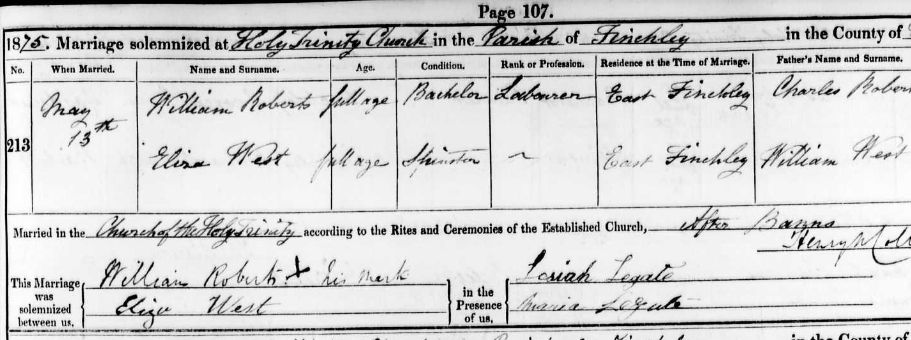 Page 107.
1875. Marriage solemnized at Holy Trinity Church in the Parish of Finchley in the County of
No. When Married. Name and Surname. Age. Condition. Rank or Profession. Residence at the Time of Marriage. Father's Name and Surname.
213 May 13th William Roberts full age Bachelor Labourer East Finchley Charles Rober
Eliza West full age Spinster ~ East Finchley William West
Married in the Church of the Holy Trinity according to the Rites and Ceremonies of the Established Church, After Banns
Henry
This Marriage was solemnized between us, William Roberts X his mark in the Presence of us, Josiah Legate
Eliza West Legate
in the County of